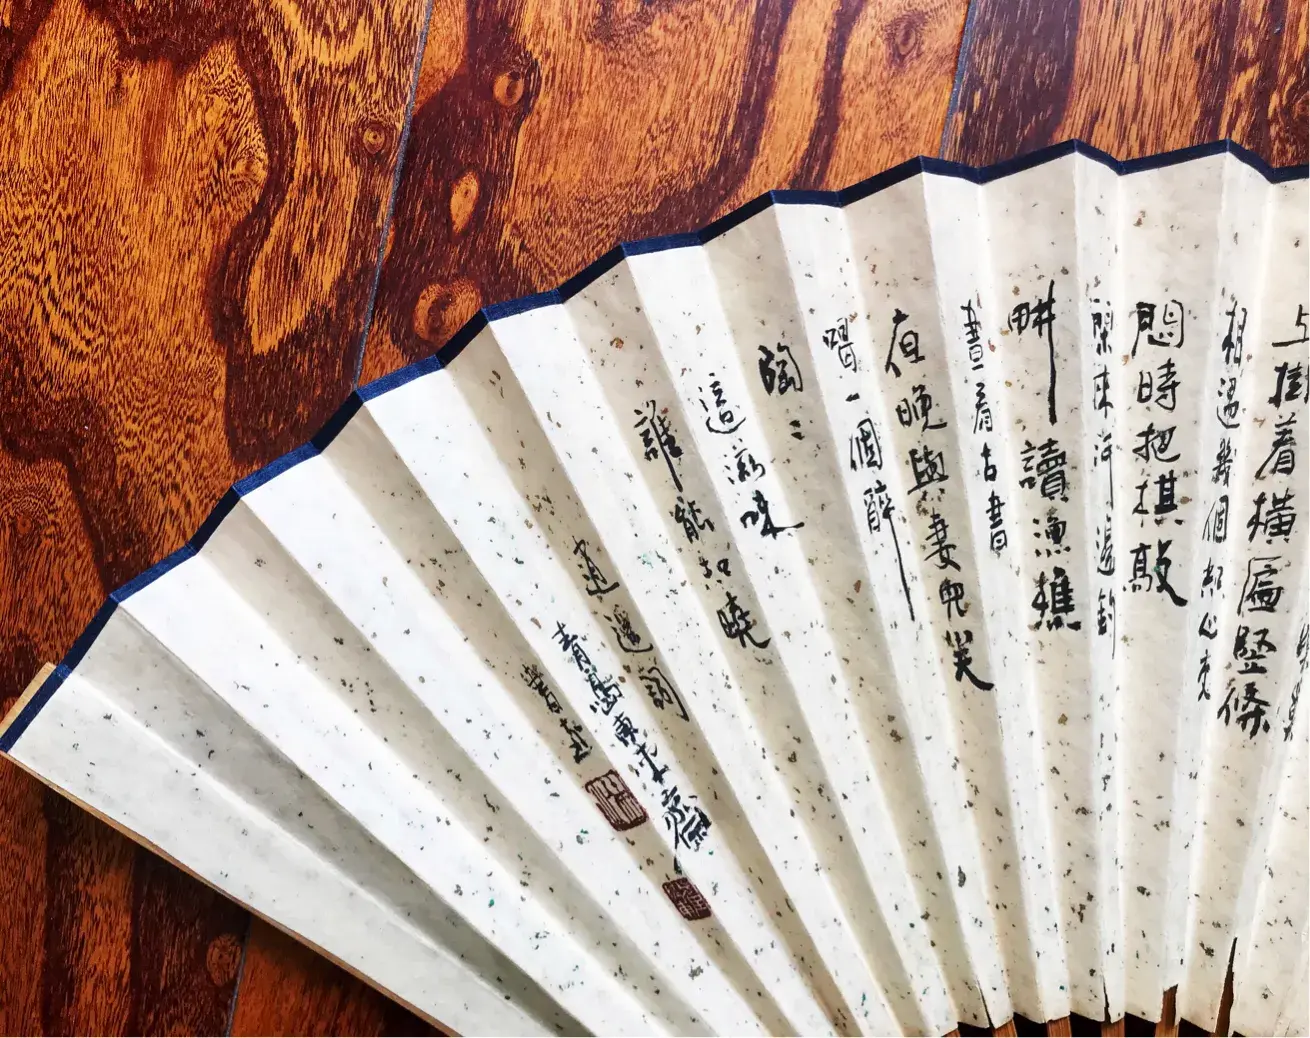 上掛着橫匾竪條
相遇幾個知心友
悶時把棋敲
閑來河邊釣
耕讀漁樵
晝看古書
夜晚與妻兒笑
喝一個醉
陶〻
這滋味
誰能知曉
逍遙詞
青島東